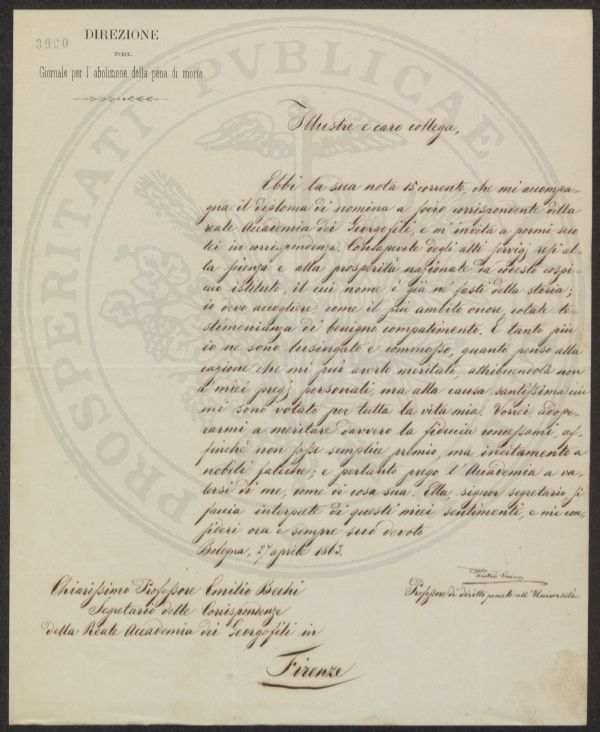 DIREZIONE
3960
DEL
Giornale per l'abolizione della pena di morte
PROSPERITATI PVBLICAE
Illustre e caro collega,
Ebbi la sua nota 15 corrente, che mi accompa-
gna il diploma di nomina a socio corrispondente della
reale Accademia dei Georgofili, e m'invita a pormi seco
lei in corrispondenza. Consapevole degli alti servigj resi al-
la scienza e alla prosperità nazionale da codesto cospi-
cuo istituto, il cui nome è già ne' fasti della storia;
io devo accogliere come il più ambito onore, cotale te-
stimonianza di benigno compatimento. E tanto più
io ne sono lusingato e commosso, quanto penso alla
cagione che mi può averlo meritato, attribuendola non
a' miei pregj personali, ma alla causa santissima cui
mi sono votato per tutta la vita mia. Vorrei adope-
rarmi a meritare davvero la fiducia concessami, af-
finchè non fosse semplice premio, ma incitamento a
nobili fatiche; e pertanto prego l'Accademia a va-
lersi di me, come di cosa sua. Ella signor segretario si
faccia interprete di questi miei sentimenti, e mi con-
sideri ora e sempre suo devoto
Bologna, 27 aprile 1863.
Pietro Ellero
Professore di diritto penale all'Università
Chiarissimo Professore Emilio Bechi
Segretario delle Corrispondenze
della Reale Accademia dei Georgofili in
Firenze